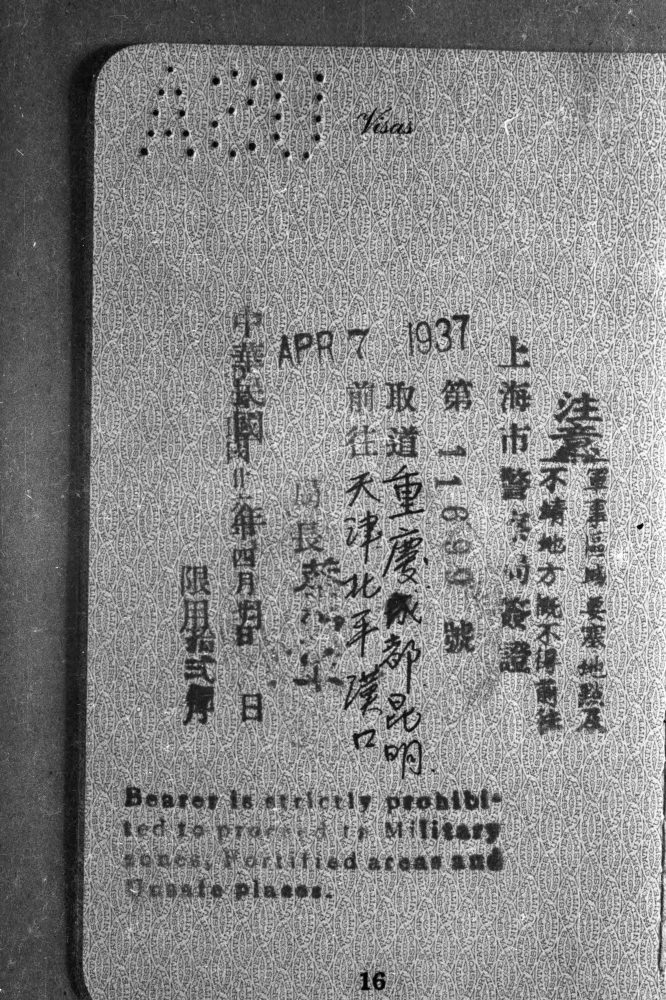 ASU
Visas
APR 7 1937
注意
軍事區域要塞地點及
不靖地方概不得前往
上海市警察局簽證
第 11699 號
取道重慶成都昆明
前往天津北平漢口
局長蔡勁軍
中華民國廿六年四月 日
限用拾貳個月
Bearer is strictly prohibi-
ted to proceed to Military
zones, Fortified areas and
Unsafe places.
16